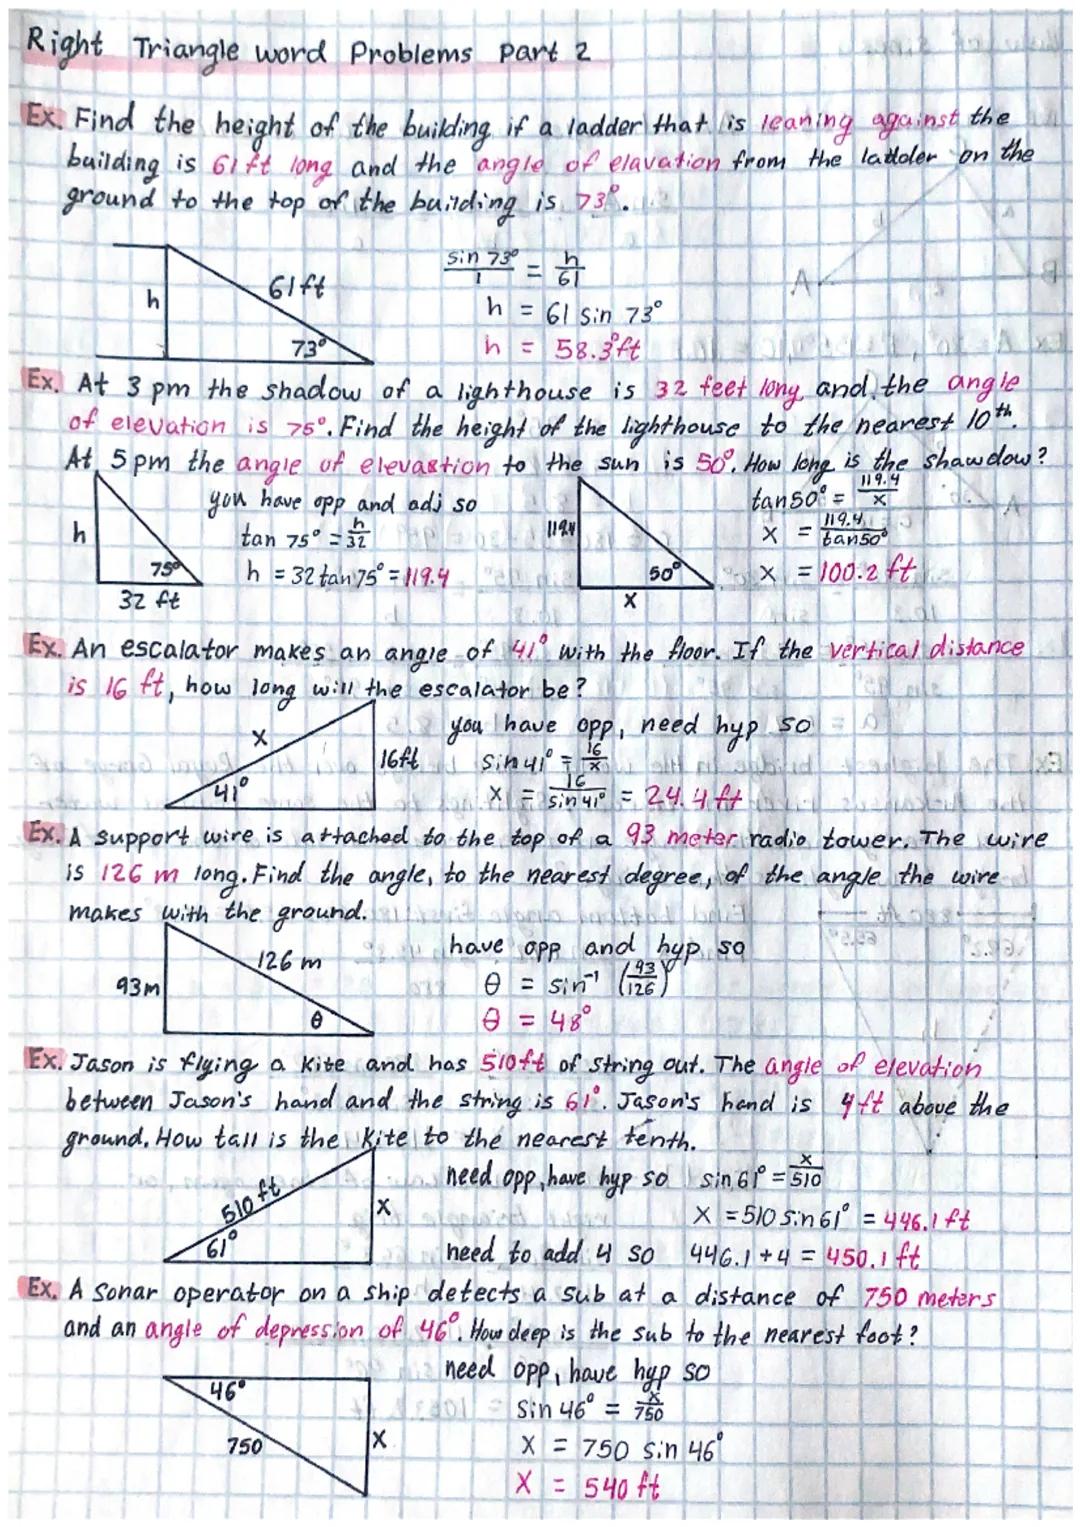 Right Triangle word Problems Part 2
Ex. Find the height of the building if a ladder that is leaning against the
building is 61 ft long and the angle of elavation from the ladder on the
ground to the top of the building is 73°.
h 61ft 73°
sin 73°/1 = h/61
h = 61 sin 73°
h = 58.3ft
Ex. At 3 pm the shadow of a lighthouse is 32 feet long and the angle
of elevation is 75°. Find the height of the lighthouse to the nearest 10th.
At 5pm the angle of elevastion to the sun is 50°. How long is the shawdow?
h 75° 32 ft
you have opp and adj so
tan 75° = h/32
h = 32 tan 75° = 119.4
119.4 50° x
tan50° = 119.4/x
x = 119.4/tan50°
x = 100.2 ft
Ex. An escalator makes an angle of 41° with the floor. If the vertical distance
is 16 ft, how long will the escalator be?
x 41° 16ft
you have opp, need hyp so
sin41° = 16/x
x = 16/sin 41° = 24.4 ft
Ex. A support wire is attached to the top of a 93 meter radio tower. The wire
is 126 m long. Find the angle, to the nearest degree, of the angle the wire
makes with the ground.
93m 126 m θ
have opp and hyp so
θ = sin⁻¹ (93/126)
θ = 48°
Ex. Jason is flying a kite and has 510ft of string out. The angle of elevation
between Jason's hand and the string is 61°. Jason's hand is 4ft above the
ground. How tall is the kite to the nearest tenth.
510 ft 61° x
need opp, have hyp so sin 61° = x/510
x = 510 sin 61° = 446.1 ft
need to add 4 so 446.1 + 4 = 450.1 ft
Ex. A sonar operator on a ship detects a sub at a distance of 750 meters
and an angle of depression of 46°. How deep is the sub to the nearest foot?
46° 750 x
need opp, have hyp so
sin 46° = x/750
x = 750 sin 46°
x = 540 ft